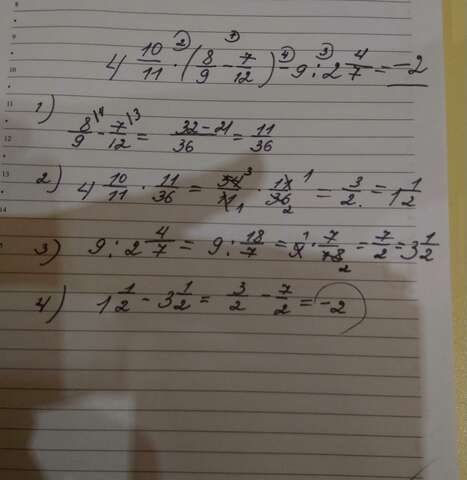 4 10/11 · (8/9 - 7/12) - 9 : 2 4/7 = -2
1) 8/9 - 7/12 = 32-21/36 = 11/36
2) 4 10/11 · 11/36 = 54/11 · 11/36 = 3/2 = 1 1/2
3) 9 : 2 4/7 = 9 : 18/7 = 9 · 7/18 = 7/2 = 3 1/2
4) 1 1/2 - 3 1/2 = 3/2 - 7/2 = -2